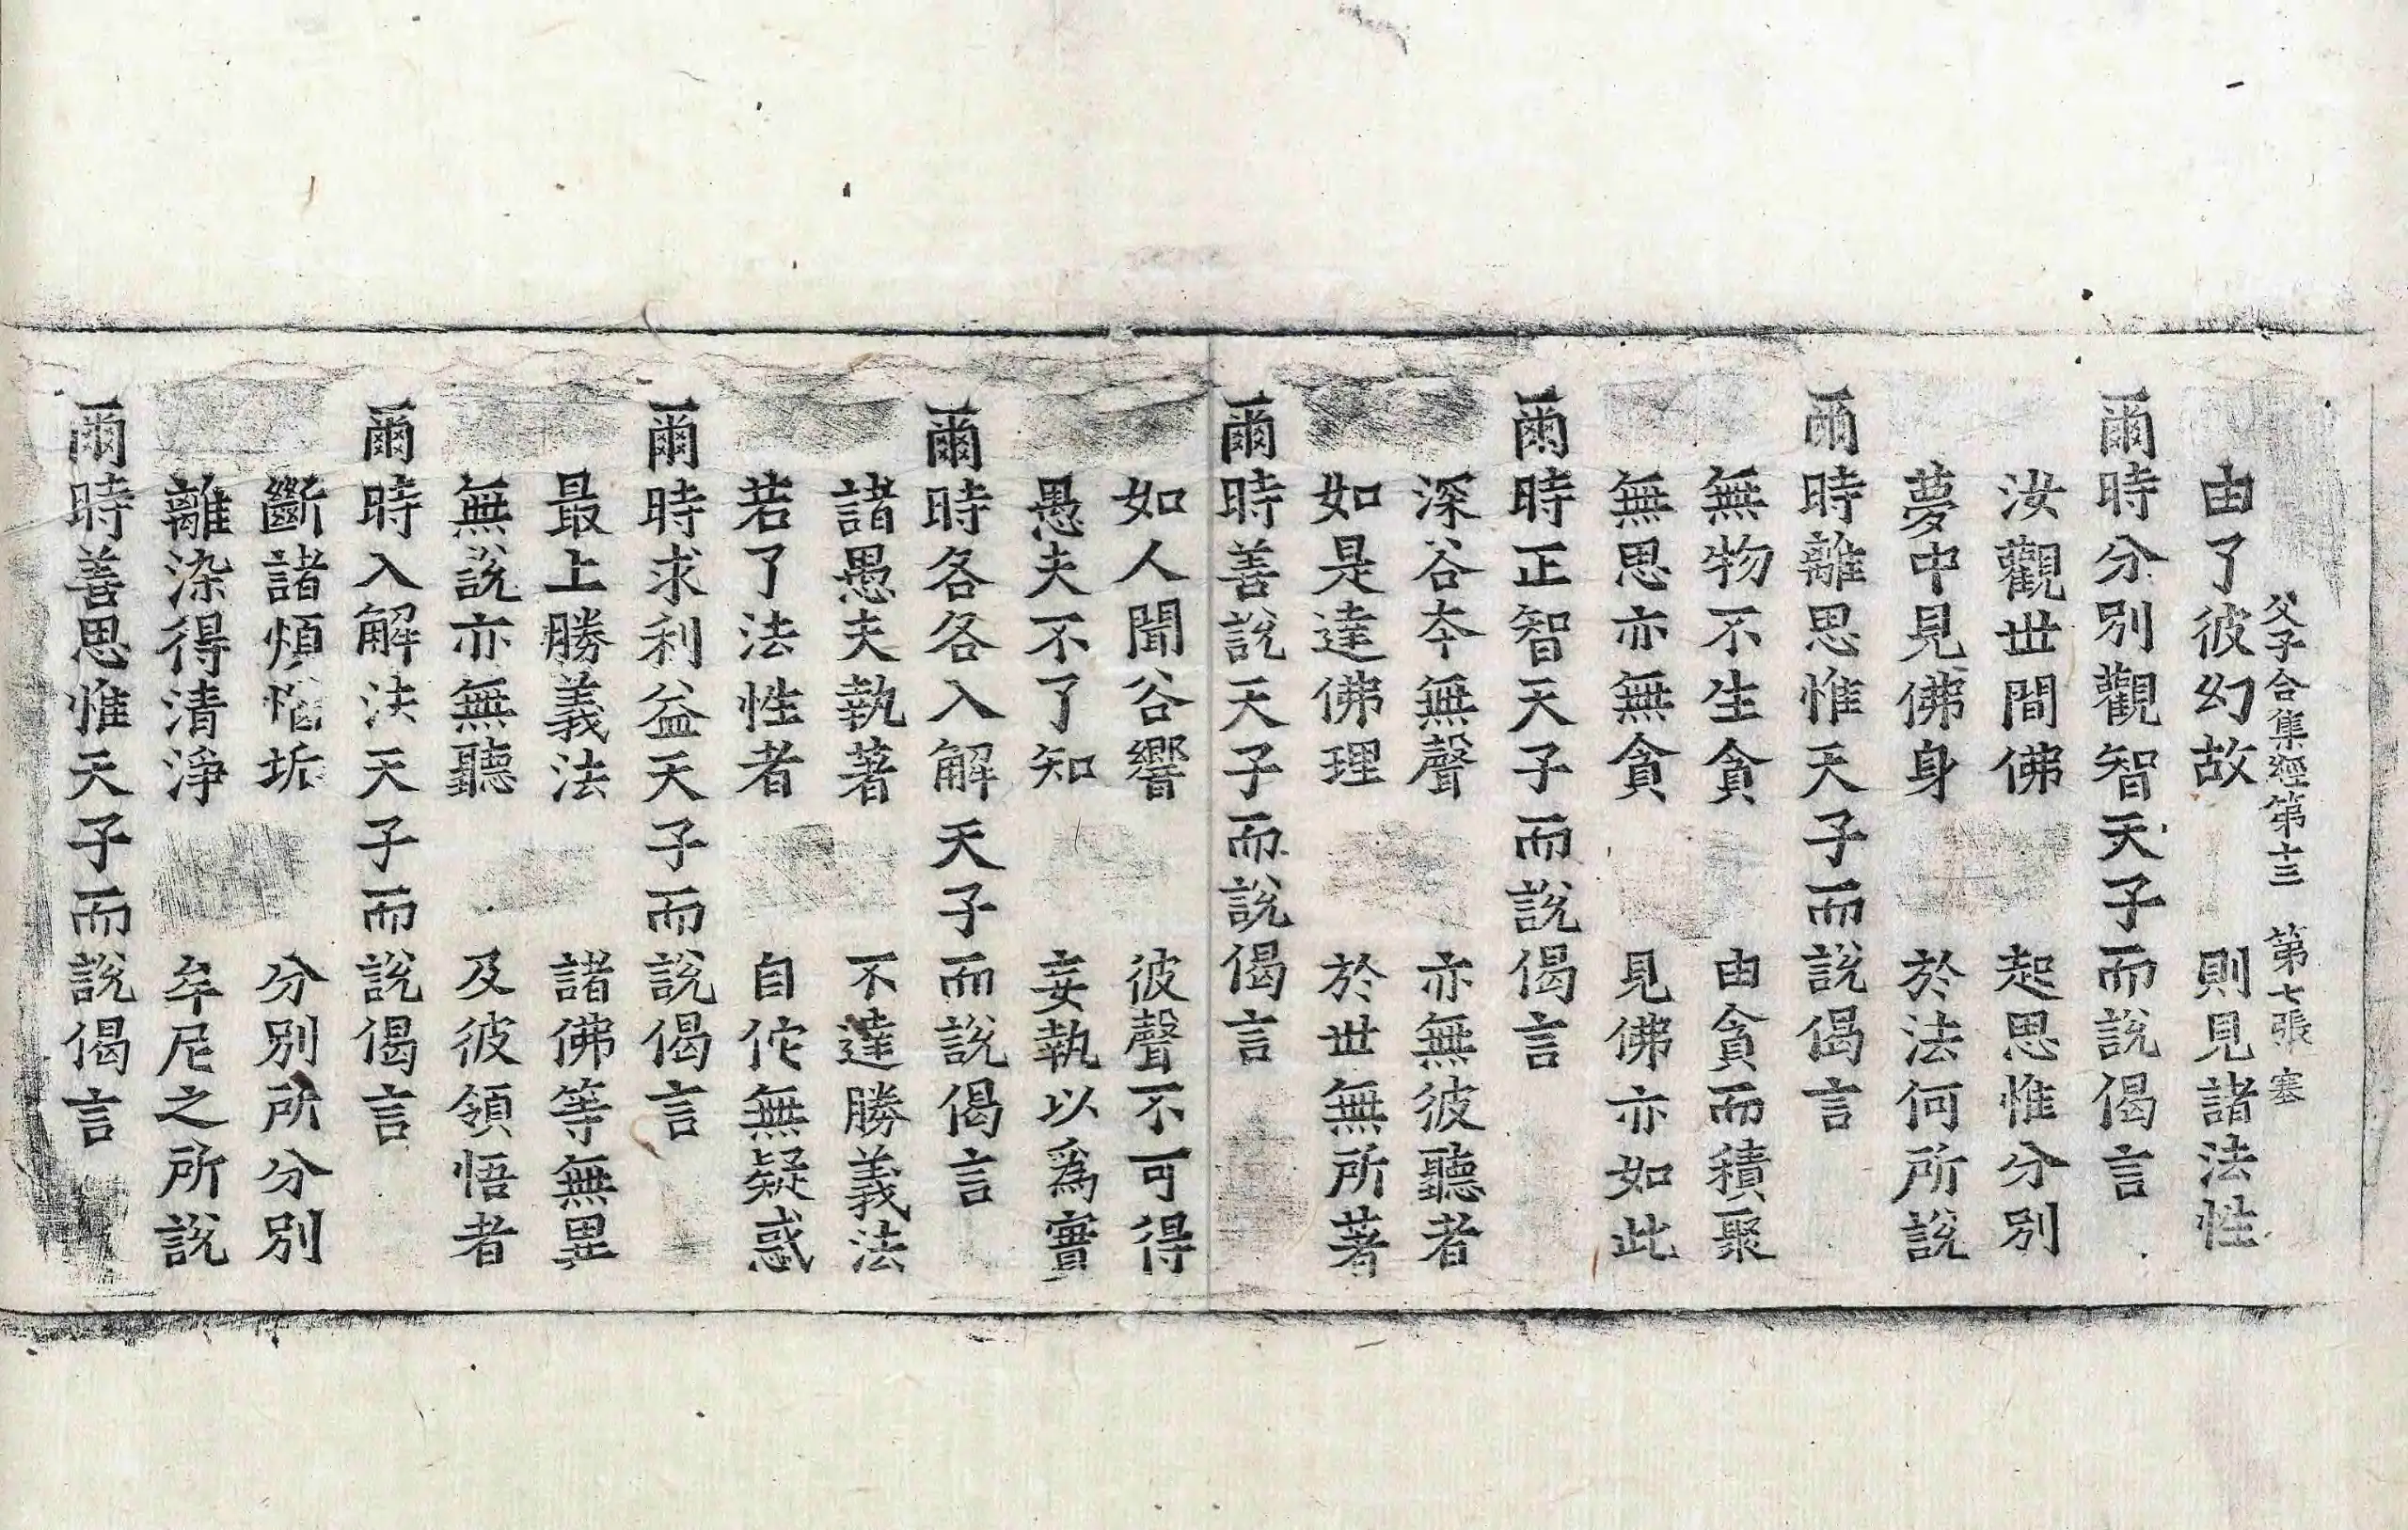 父子合集經第十三　第七張　塞
由了彼幻故　則見諸法性
爾時分別觀智天子而說偈言
汝觀世間佛　起思惟分別
夢中見佛身　於法何所說
爾時離思惟天子而說偈言
無物不生貪　由貪而積聚
無思亦無貪　見佛亦如此
爾時正智天子而說偈言
深谷本無聲　亦無彼聽者
如是達佛理　於世無所著
爾時善說天子而說偈言
如人聞谷響　彼聲不可得
愚夫不了知　妄執以爲實
爾時各各入解天子而說偈言
諸愚夫執著　不達勝義法
若了法性者　自佗無疑惑
爾時求利益天子而說偈言
最上勝義法　諸佛等無異
無說亦無聽　及彼領悟者
爾時入解法天子而說偈言
斷諸煩惱垢　分別所分別
離染得清淨　牟尼之所說
爾時善思惟天子而說偈言